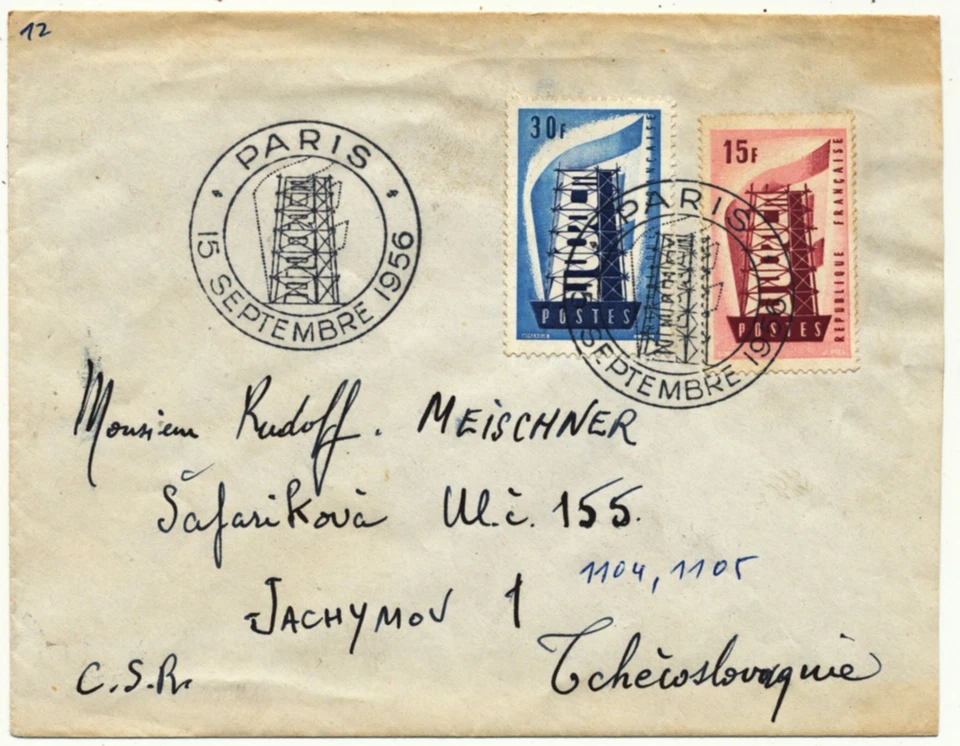 12
PARIS
15 SEPTEMBRE 1956
30F
FRANÇAISE
POSTES
15F
REPUBLIQUE FRANÇAISE
POSTES
PARIS
SEPTEMBRE 1956
Monsieur Rudolf. MEiSCHNER
Šafarikovà Ul.č. 155.
1104, 1105
JACHYMOV 1
C.S.R. Tchécoslovaquie